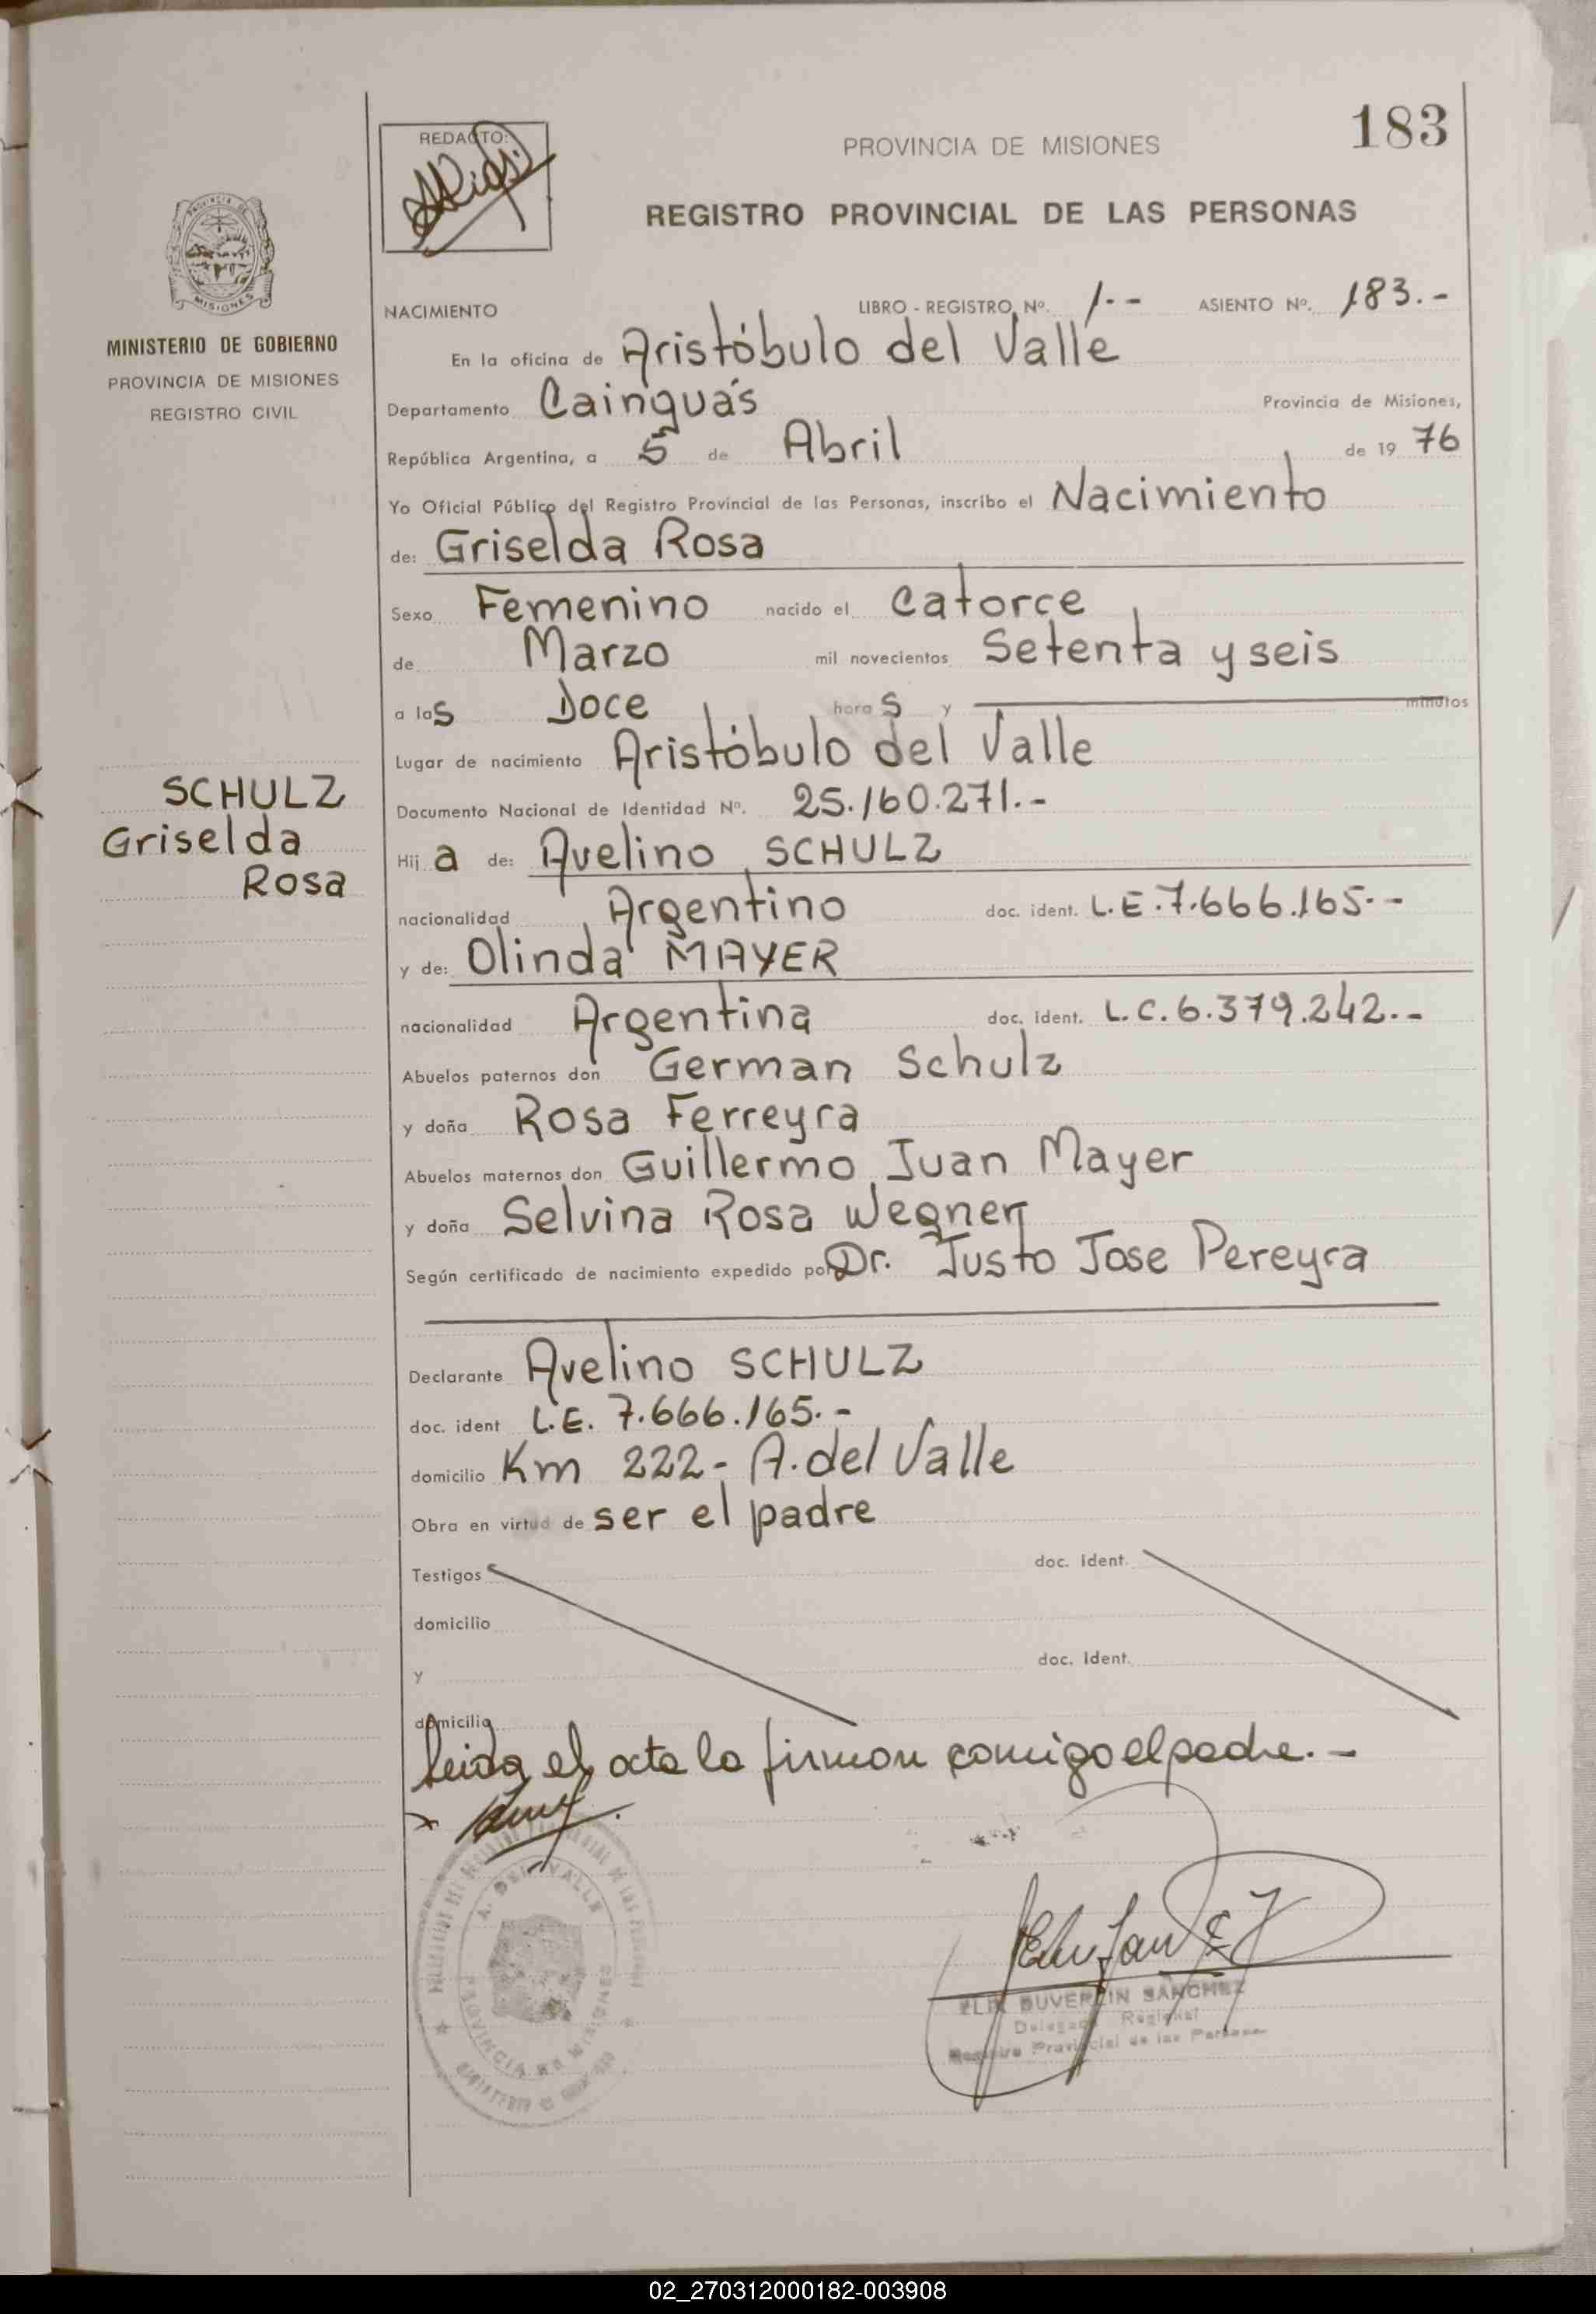 183
REDACTO:
PROVINCIA DE MISIONES
REGISTRO PROVINCIAL DE LAS PERSONAS
PROVINCIA DE
MISIONES
MINISTERIO DE GOBIERNO
PROVINCIA DE MISIONES
REGISTRO CIVIL
NACIMIENTO LIBRO - REGISTRO Nº. 1.-- ASIENTO Nº. 183.-
En la oficina de Aristóbulo del Valle
Departamento Cainguás Provincia de Misiones,
República Argentina, a 5 de Abril de 19 76
Yo Oficial Público del Registro Provincial de las Personas, inscribo el Nacimiento
de: Griselda Rosa
Sexo Femenino nacido el catorce
de Marzo mil novecientos Setenta y seis
a las Doce horas y minutos
Lugar de nacimiento Aristóbulo del Valle
SCHULZ
Griselda
Rosa
Documento Nacional de Identidad Nº. 25.160.271.-
Hija de: Avelino SCHULZ
nacionalidad Argentino doc. ident. L.E.7.666.165.-
y de: Olinda MAYER
nacionalidad Argentina doc. ident. L.C.6.379.242.-
Abuelos paternos don German Schulz
y doña Rosa Ferreyra
Abuelos maternos don Guillermo Juan Mayer
y doña Selvina Rosa Wegner
Según certificado de nacimiento expedido por Dr. Justo Jose Pereyra
Declarante Avelino SCHULZ
doc. ident L.E. 7.666.165.-
domicilio Km 222- A. del Valle
Obra en virtud de ser el padre
Testigos doc. ident.
domicilio
y doc. ident.
domicilio
Leida el acta la firman comigo el padre.-
A. DEL VALLE
PROVINCIA DE MISIONES
SANCHEZ
Delegado Regional
Registro Provincial de las Personas
02_270312000182-003908